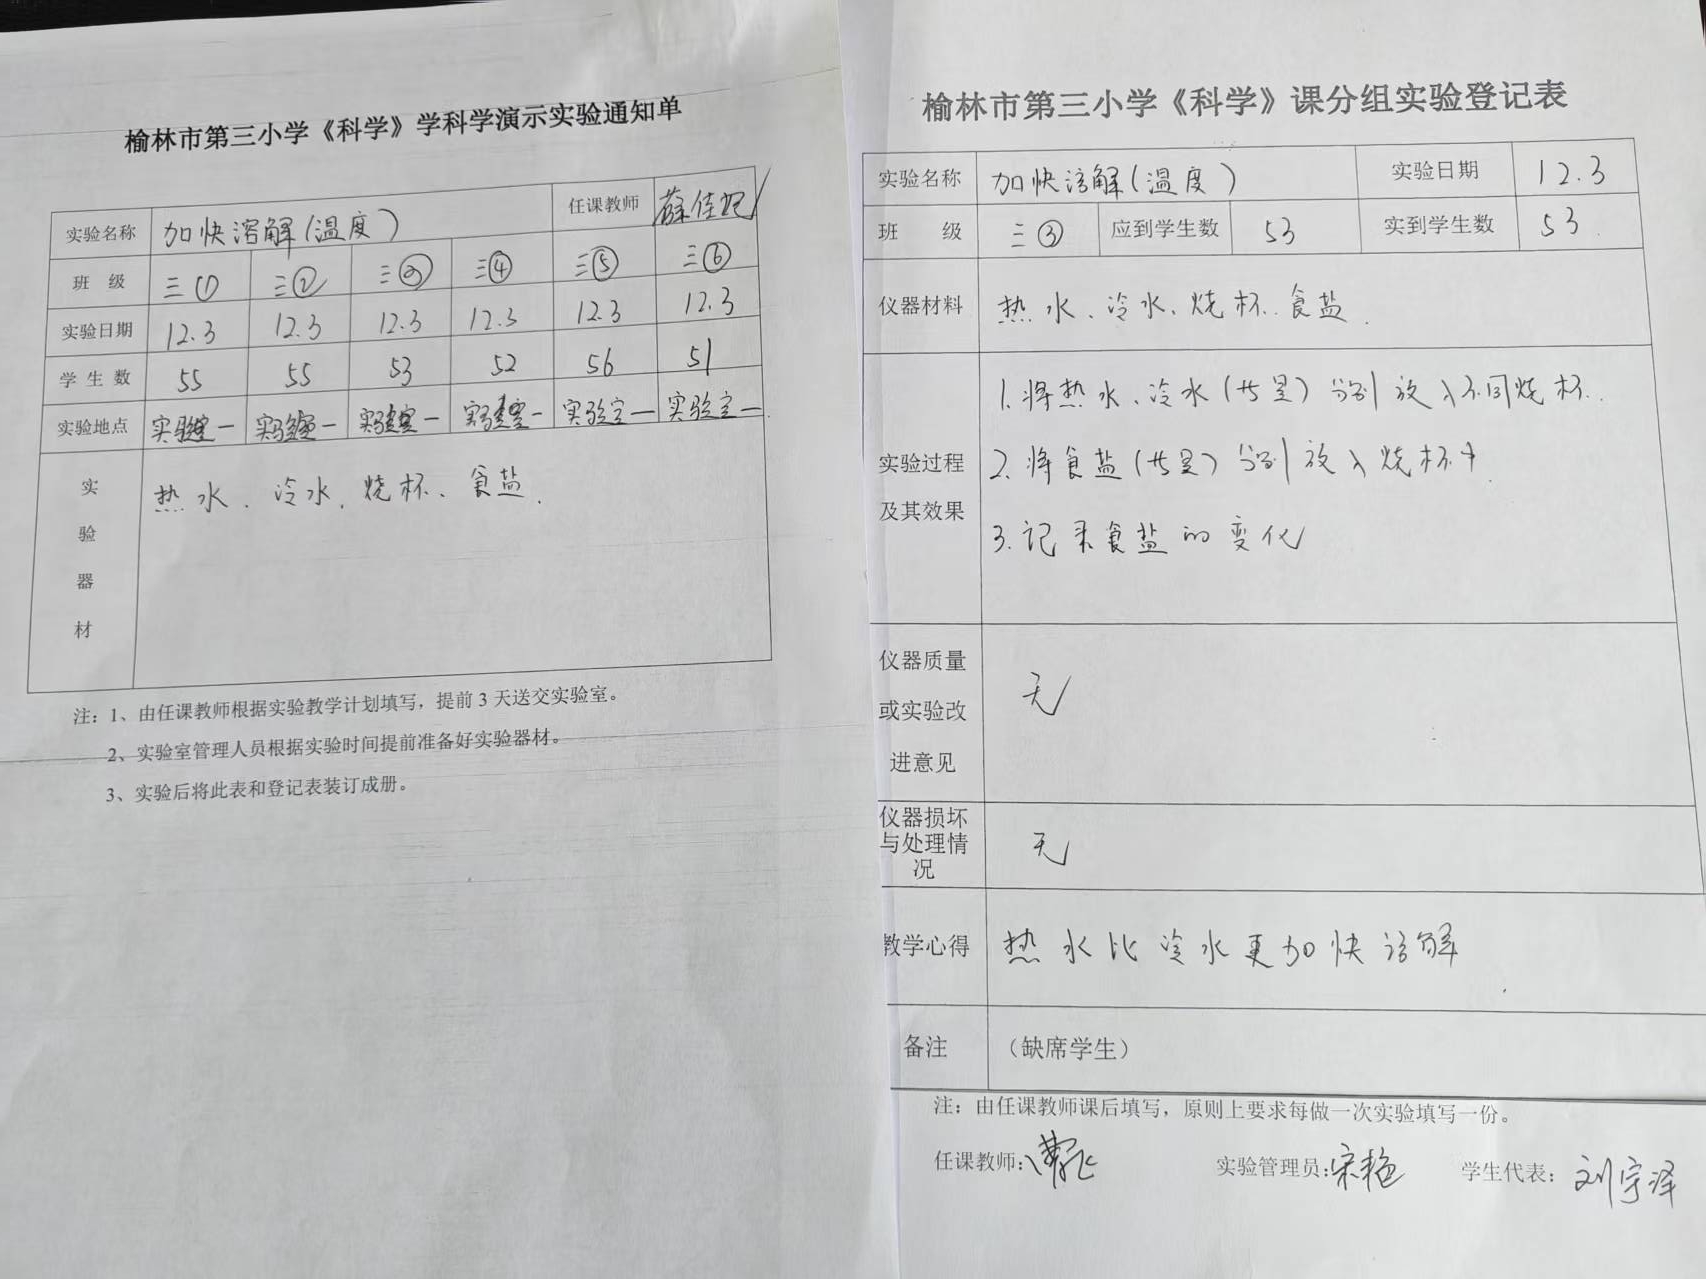 榆林市第三小学《科学》学科学演示实验通知单
实验名称 加快溶解(温度) 任课教师
班 级 三① 三② 三③ 三④ 三⑤ 三⑥
实验日期 12.3 12.3 12.3 12.3 12.3 12.3
学 生 数 55 55 53 52 56 51
实验地点 实验室一 实验室一 实验室一 实验室一 实验室一 实验室一
实验器材 热水、冷水、烧杯、食盐.
注：1、由任课教师根据实验教学计划填写，提前 3 天送交实验室。
2、实验室管理人员根据实验时间提前准备好实验器材。
3、实验后将此表和登记表装订成册。
榆林市第三小学《科学》课分组实验登记表
实验名称 加快溶解(温度) 实验日期 12.3
班 级 三③ 应到学生数 53 实到学生数 53.
仪器材料 热水、冷水、烧杯、食盐.
实验过程及其效果
1.将热水、冷水(等量)分别放入不同烧杯.
2.将食盐(等量)分别放入烧杯中.
3.记录食盐的变化
仪器质量或实验改进意见 无
仪器损坏与处理情况 无
教学心得 热水比冷水更加快溶解
备注 （缺席学生）
注：由任课教师课后填写，原则上要求每做一次实验填写一份。
任课教师: 实验管理员:宋艳 学生代表：刘宇泽